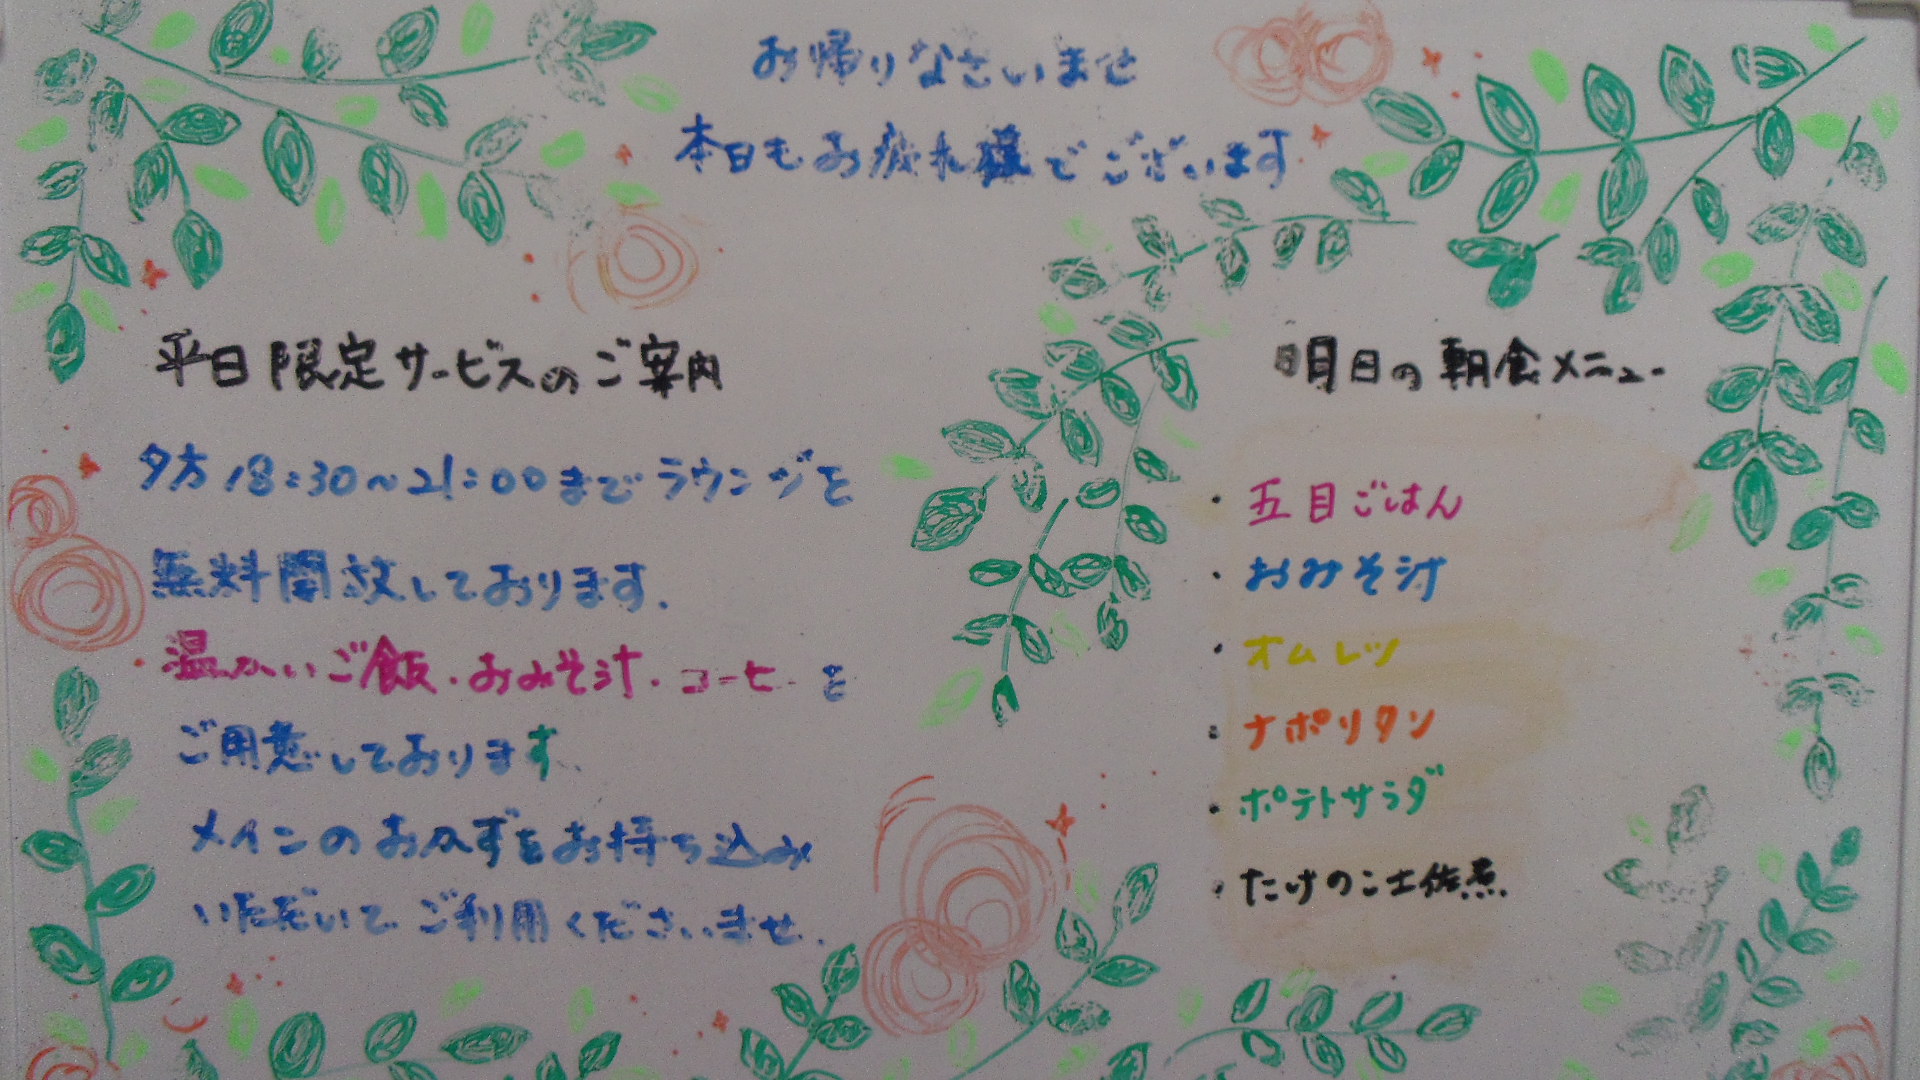 お帰りなさいませ
本日もお疲れ様でございます
平日限定サービスのご案内
夕方18:30~21:00までラウンジを
無料開放しております.
温かいご飯・おみそ汁・コーヒーを
ご用意しております、
メインのおかずをお持ち込み
いただいてご利用くださいませ.
明日の朝食メニュー
・五目ごはん
・おみそ汁
・オムレツ
・ナポリタン
・ポテトサラダ
・たけのこ土佐煮